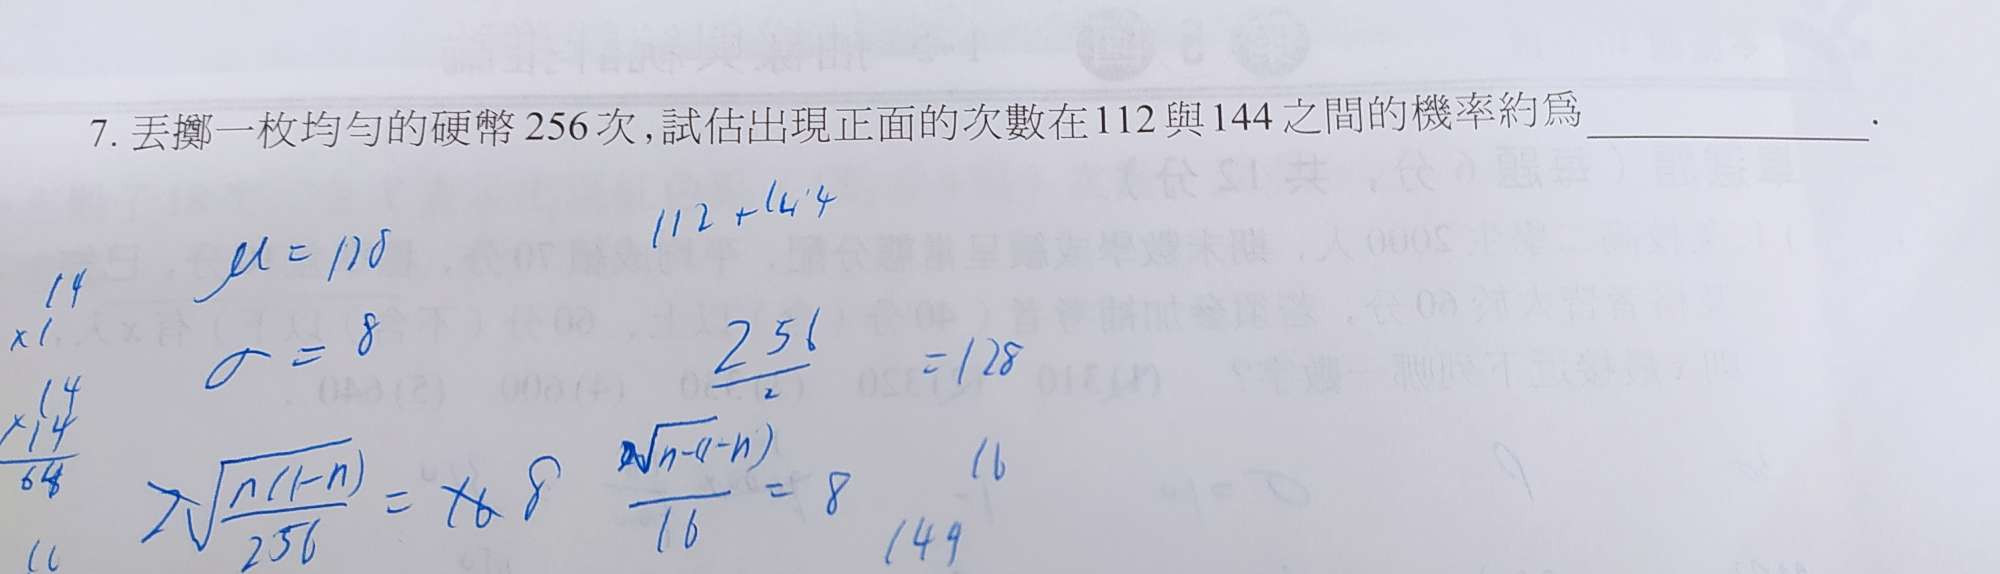 7. 丟擲一枚均勻的硬幣 256 次,試估出現正面的次數在 112 與 144 之間的機率約為________.
112 + 144
μ = 128
14
×1
σ = 8
256/2 = 128
14
×14
64
2√(n(1-n)/256) = 8
2√n-(1-n)/16 = 8
16
149